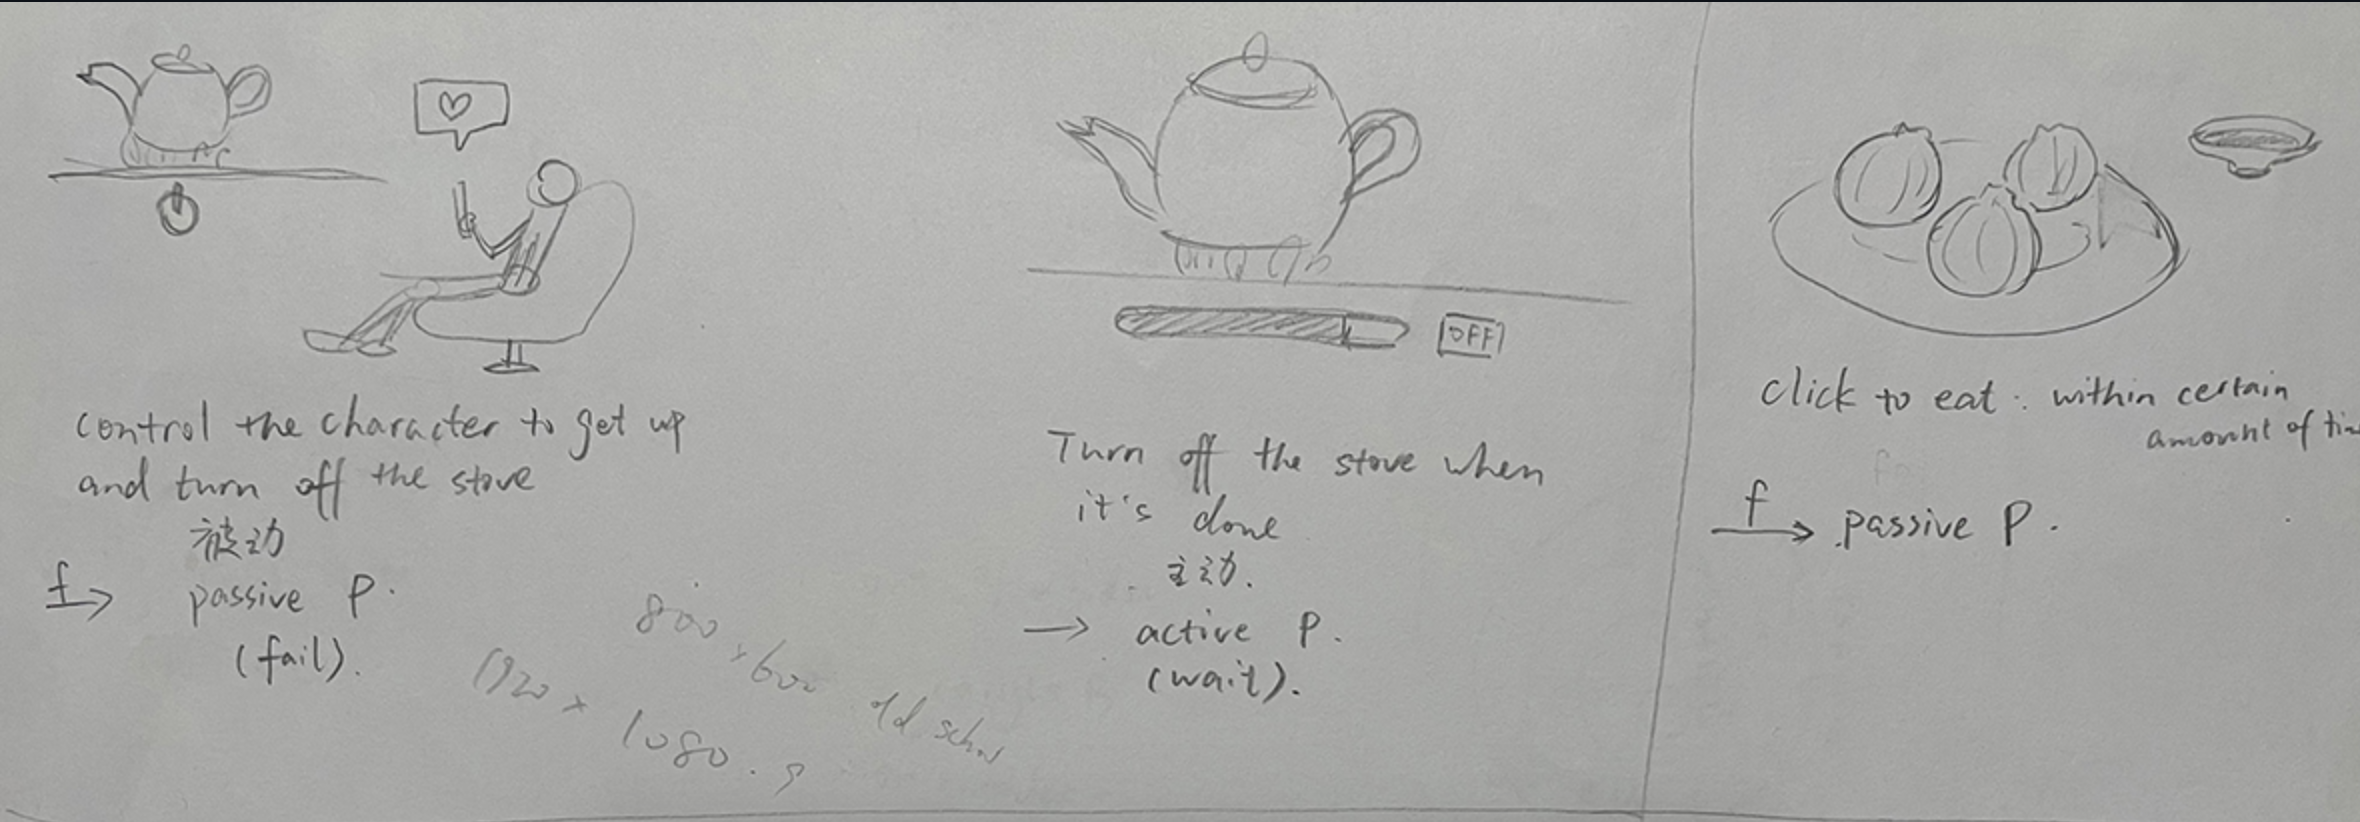 control the character to get up
and turn off the stove
被动
f
passive P.
(fail).
800 x 600 old
1920 x 1080.
OFF
Turn off the stove when
it's done
主动.
active P.
(wait).
click to eat: within certain
amount of
f
passive P.